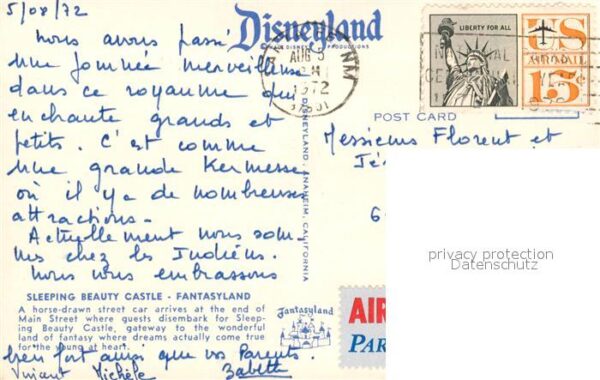 5/08/72
Nous avons passé
une journée merveilleuse
dans ce royaume qui
enchante grands et
petits. C'est comme
une grande Kermesse
où il y a de nombreuses
attractions.
Actuellement nous som-
mes chez les Indiens.
Nous vous embrassons
bien fort ainsi que vos Parents.
Vincent Michèle Babeth
SLEEPING BEAUTY CASTLE - FANTASYLAND
A horse-drawn street car arrives at the end of
Main Street where guests disembark for Sleep-
ing Beauty Castle, gateway to the wonderful
land of fantasy where dreams actually come true
for the young at heart.
Disneyland
WALT DISNEY PRODUCTIONS
AUG 5
PM
1972
NM
DISNEYLAND, ANAHEIM, CALIFORNIA
Fantasyland
LIBERTY FOR ALL
US
AIRMAIL
15¢
POST CARD
Messieurs Florent et
Jé
6
AIR
PAR
privacy protection
Datenschutz